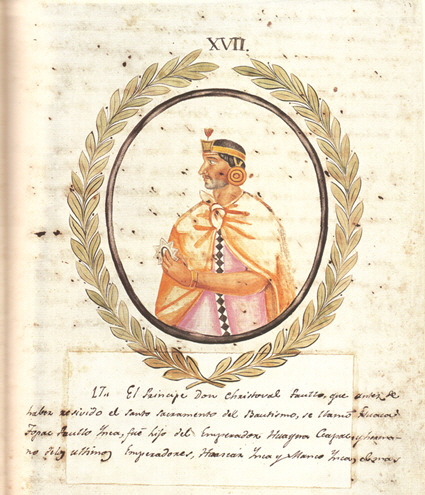 XVII.
17. El Principe Don Christoval Paullo, que antes de
haber resivido el santo sacramento del Bautismo, se llamó
Topac Paullo Ynca, fue hijo del Emperador Huayna Ccapac y herma-
no de los ultimos Emperadores, Huascar Ynca y Manco Ynca